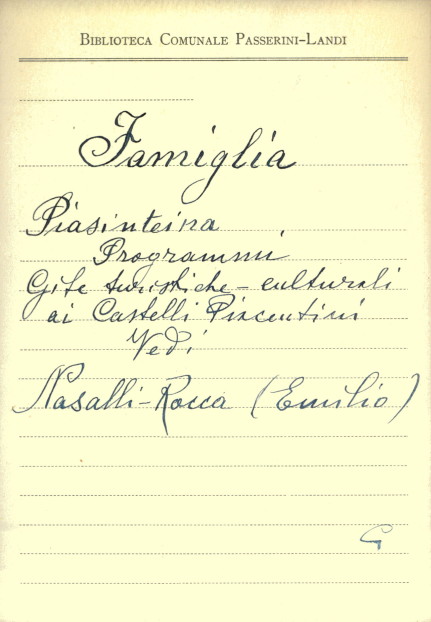 BIBLIOTECA COMUNALE PASSERINI-LANDI
Famiglia
Piasinteina
Programmi
Gite turistiche - culturali
ai Castelli Piacentini
Vedi
Nasalli-Rocca (Emilio)
G